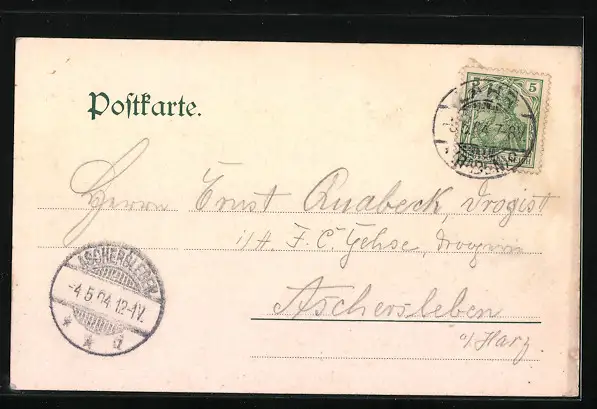 Postkarte.
5
LAHR
(BADEN)
Herrn Ernst Quabeck, Drogist
i/H. F. C. Gehse, Drogerie
Aschersleben
a/Harz.
ASCHERSLEBEN
-4.5.04.12-1V.
* * d